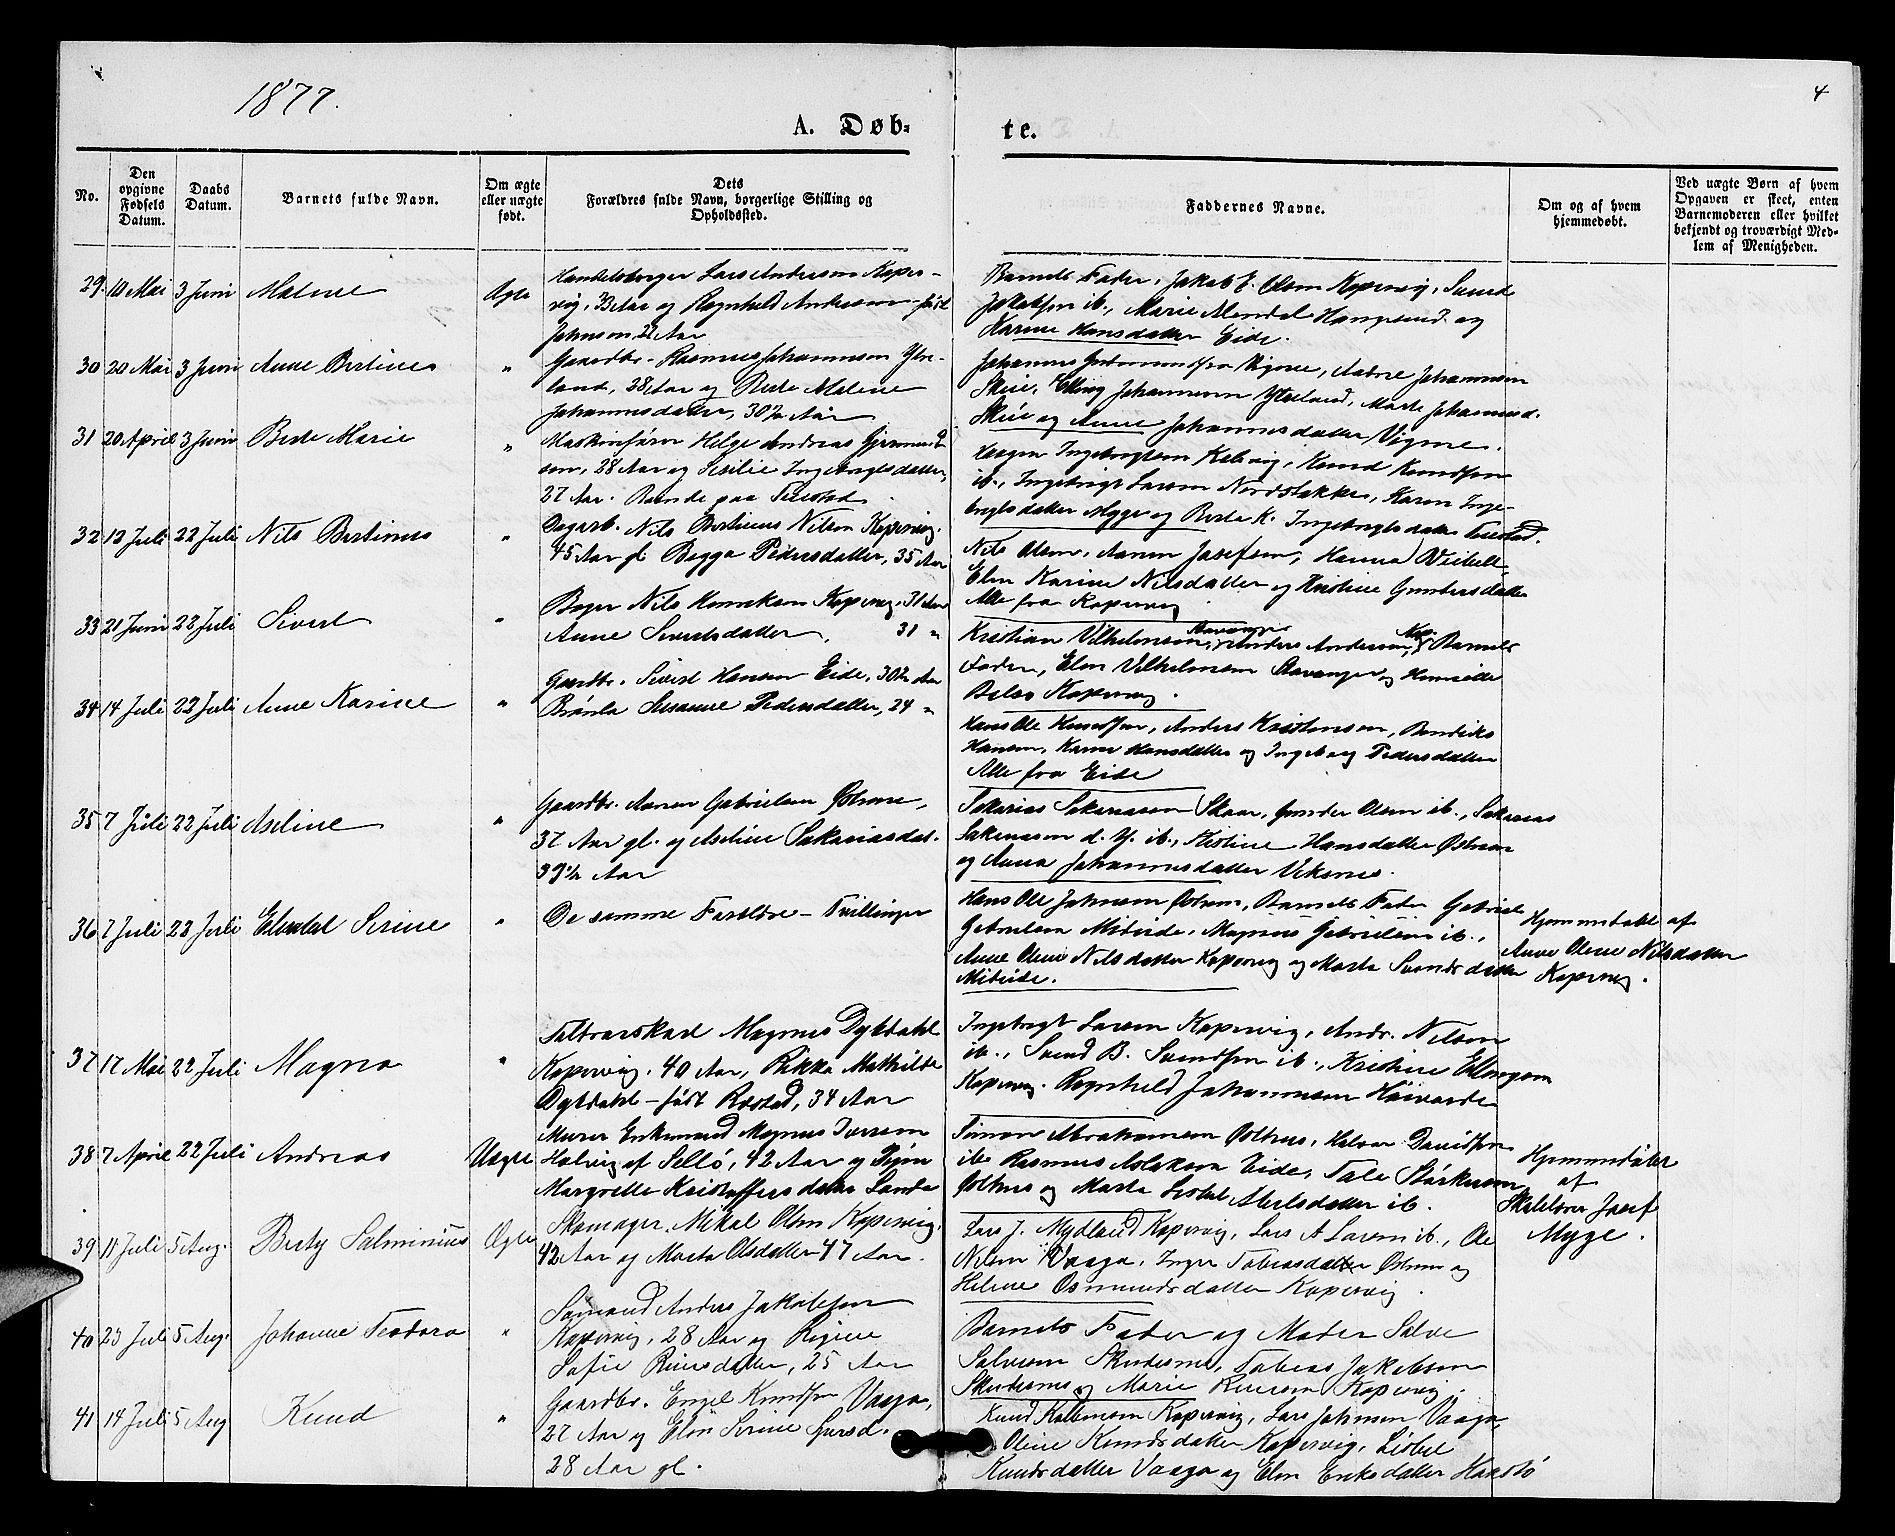 1877.
4
A. Døb-
te.
No.
Den opgivne Fødsels Datum.
Daabs Datum.
Barnets fulde Navn.
Om ægte eller uægte født.
Dets Forældres fulde Navn, borgerlige Stilling og Opholdssted.
Faddernes Navne.
Om og af hvem hjemmedøbt.
Ved uægte Børn af hvem Opgaven er skeet, enten Barnemoderen eller hvilket bekjendt og troværdigt Medlem af Menigheden.
29. 10 Mai 3 Juni Malene Ægte
Handelsborger Lars Anderson Koper-
vig, 33 Aar og Ragnhild Anderson født
Johnson, 22 Aar
Barnets Fader, Jakob E. Olsen Kopervig, Svend
Jakobsen ib., Marie Mendal Haugesund og
Karine Hansdatter Eide.
30 20 Mai 3 Juni Anne Bertine "
Gaardbr. Rasmus Johannesen Ytre-
land, 28 Aar og Berte Malene
Johannesdatter, 30½ Aar
Johannes Gudmundsen Vigene, Aadne Johannesen
Skeie, Elling Johannesen Ytreland, Marte Johannesd.
Skeie og Anne Johannesdatter Vigene.
31 20 April 3 Juni Berte Marie "
Maskinfører Helge Andreas
sen, 28 Aar og Sesilie Ingebregtsdatter,
27 Aar. Boende paa
Ingebregtsen Kolevig, Knud Knudsen
ib., Ingebrigt Larsen Nordstokke, Karen Inge-
bregtsdatter Myge og Berte K. Ingebregtsdatter
32 12 Juli 22 Juli Nils Bertinus "
Dagarb. Nils Bertinus Nilsen Kopervig.
45 Aar gl. Begga Pedersdatter, 35 Aar
Nils Olsen, Aanen Josefsen, Hanna
Elen Karine Nilsdatter og Kristine Gundersdatter
Alle fra Kopervig
33 21 Juni 22 Juli Sivert "
Nils Henriksen Kopervig, 31 Aar
Anne Sivertsdatter, 31 "
Kristian Vilhelmsen, Stavanger, Anders Anderson, Kop. Barnets
Fader, Elen Vilhelmsen Stavanger og
Kopervig.
34 14 Juli 22 Juli Anne Karine "
Gaardbr. Sivert Hansen Eide, 30½ Aar
Brønla Susanne Pedersdatter, 24 "
Hans Ole Knudsen, Anders Kristensen, Bendiks
Hansen, Karen Hansdatter og Ingeborg Pedersdatter
Alle fra Eide
35 7 Juli 22 Juli Aseline "
Gaardbr. Aanen Gabrielsen Østrem,
37 Aar gl. og Aseline Sakariasdat.
39½ Aar
Sakarias Sakariasen Skaar, Gunder Olsen ib., Sakarias
Sakariasen d. y. ib., Kistine Hansdatter Østrem
og Anna Johannesdatter Veksnes.
36 7 Juli 22 Juli Elendel Serine "
De samme Foreldre - Tvillinger
Hans Ole Johnsen Østrem, Barnets Fader Gabriel
Gabrielsen Midtvide, Magnus Gabrielsen ib.,
Anne Oline Nilsdatter Kopervig og Marte Svendsdatter
Midtvide.
Hjemmedøbt af
Anne Oline Nilsdatter
Kopervig.
37 17 Mai 22 Juli Magna "
Toldrorskarl Magnus Dybdahl
Kopervig, 40 Aar, Rikka Mathilde
Dybdahl - født Røstad, 34 Aar
Ingebrigt Larsen Kopervig, Andr. Nilsen
ib., Svend B. Svendsen ib., Kristine Ellingsen
Kopervig. Ragnhild Johannesen Høivarde
38 7 April 22 Juli Andreas Uægte
Murer Enkemand Magnus Iversen
Halvig af Sellø, 42 Aar og
Margrethe Kristoffersdatter Sande
Simon Abrahamsen Østhus, Halvor Davidsen
ib. Rasmus Aslaksen Eide, Tale Størkersen
Østhus og Marta Lisbet Abelsdatter ib.
Hjemmedøbt
af
Skolelærer Josef
Myge.
39 11 Juli 5 Aug. Berty Salminius Ægte
Skomager. Mikal Olsen Kopervig.
42 Aar og Marta Olsdatter 47 Aar.
Lars J. Mydland Kopervig, Lars A Larsen ib., Ole
Nilsen Vaaga, Inger Tobiasdatter Østrem og
Helene Osmundsdatter Kopervig.
40 23 Juli 5 Aug. Johanne Teodora "
Sømand Anders Jakobsen
Kopervig, 28 Aar og Regine
Sofie Reiersdatter, 25 Aar
Barnets Fader og Moder Salve
Salvesen Skudesnes, Tobias Jakobsen
Skudesnes og Marie Reiersen Kopervig.
41 14 Juli 5 Aug Knud "
Gaardbr. Engel Knudsen Vaaga,
27 Aar og Elen Serine
28 Aar gl.
Knud Kolbensen Kopervig, Lars Johnsen Vaaga,
Oline Knudsdatter Kopervig, Lisbet
Knudsdatter Vaaga og Elen Eriksdatter Haastø